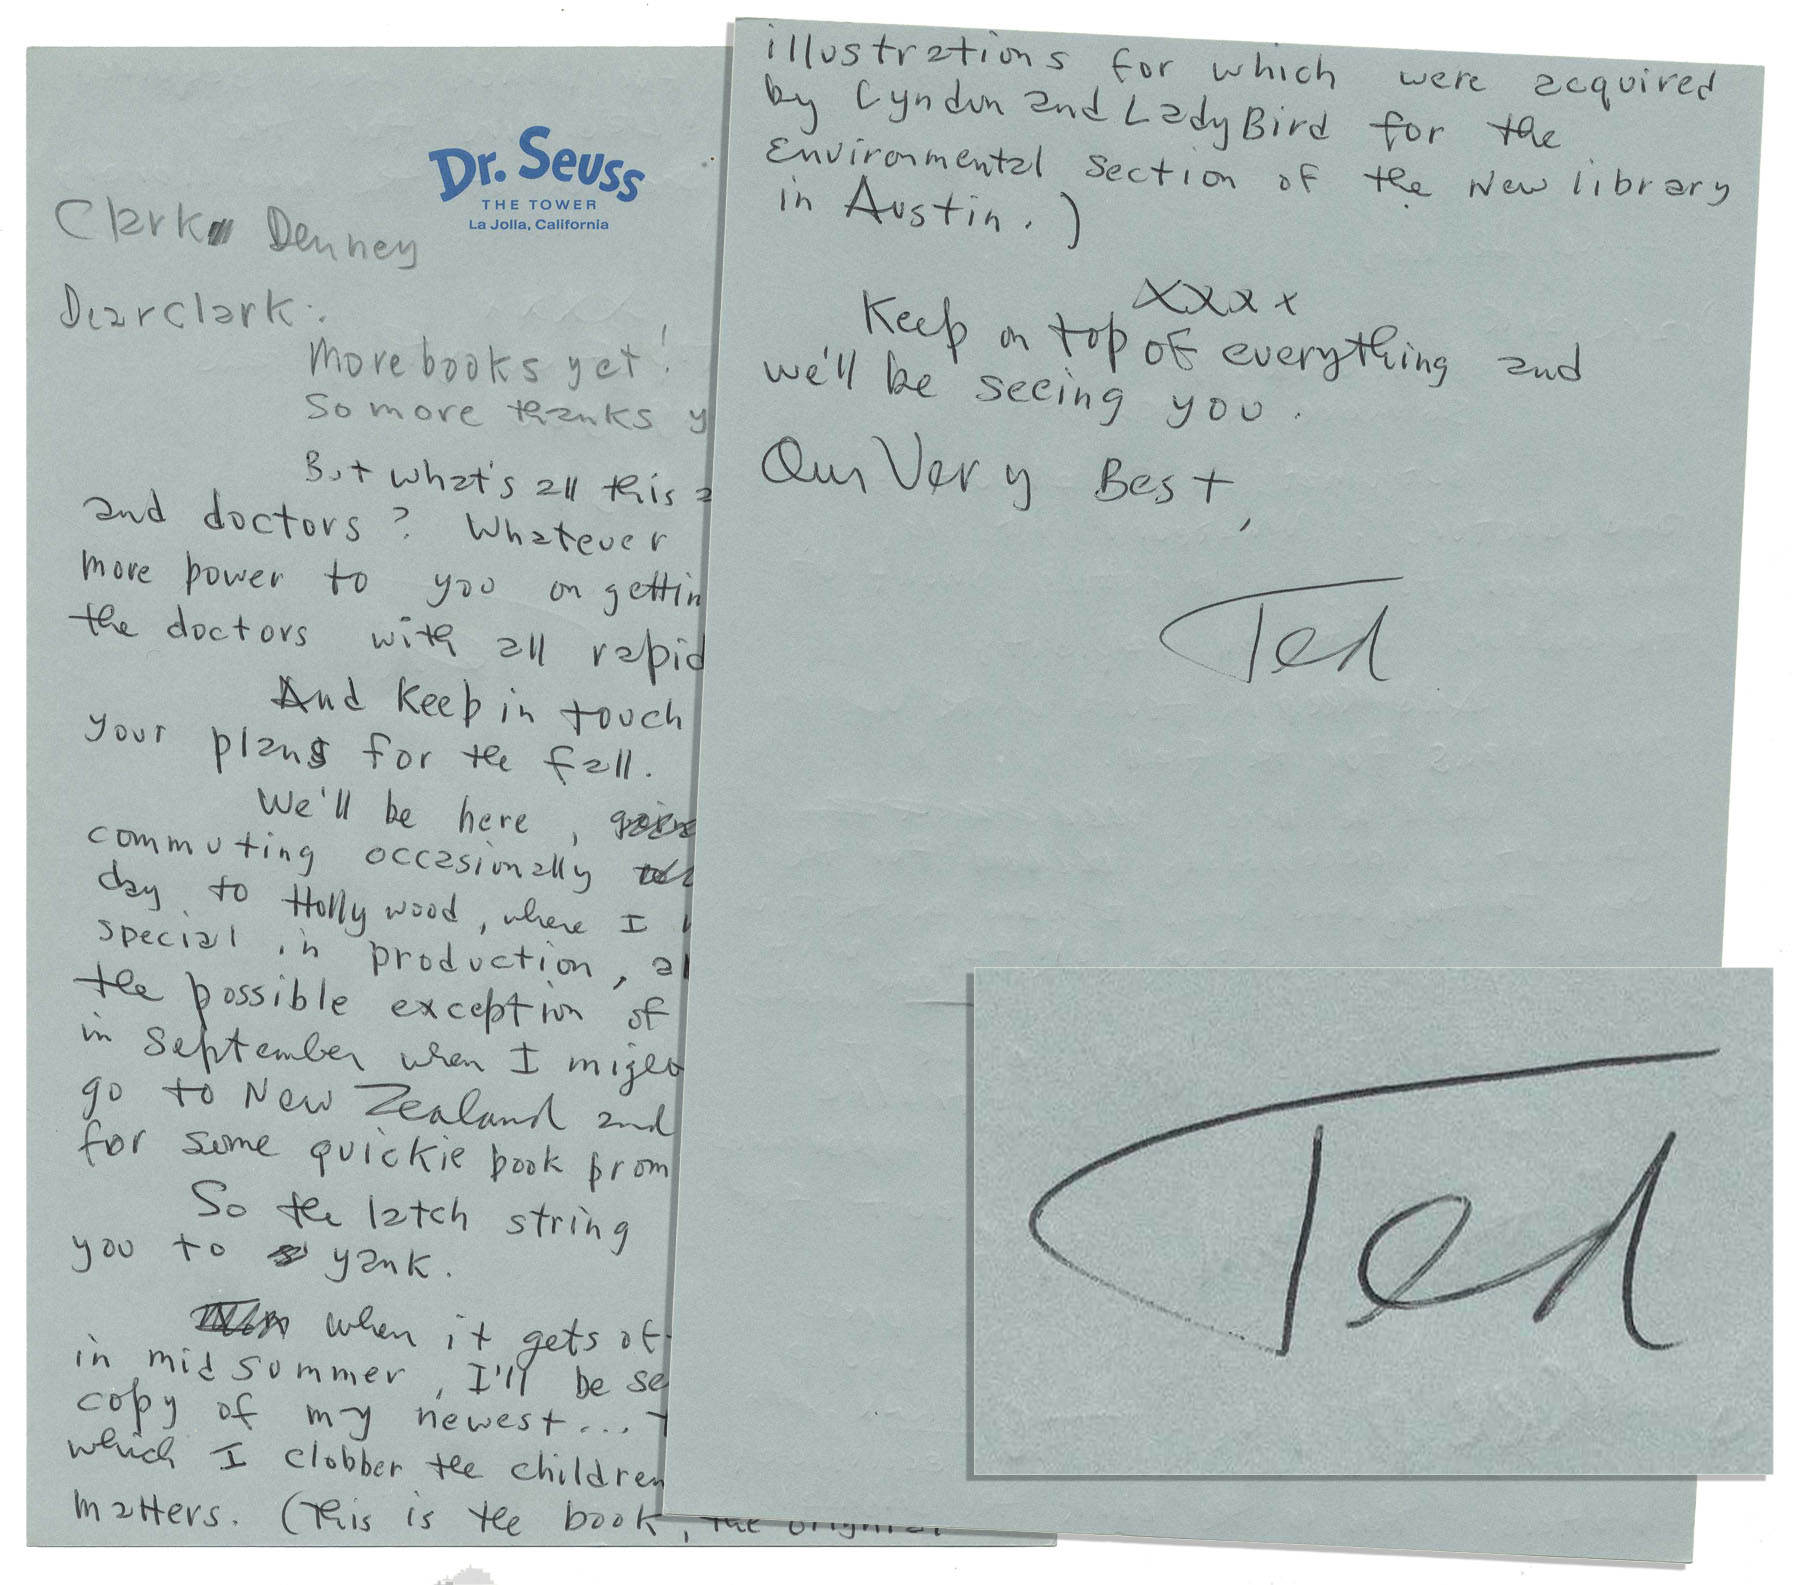 Dr. Seuss
THE TOWER
La Jolla, California
Clark Denney
Dear Clark:
More books yet!
So more thanks y
But what's all this a
and doctors? Whatever
more power to you on gettin
the doctors with all rapid
And Keep in touch
your plans for the fall.
We'll be here,
commuting occasionally
day to Hollywood, where I
special in production, al
the possible exception of
in September when I might
go to New Zealand and
for some quickie book prom
So the latch string
you to yank.
When it gets of
in midsummer, I'll be se
copy of my newest... T
which I clobber the children
matters. (This is the book, the original
illustrations for which were acquired
by Lyndon and LadyBird for the
Environmental section of the New library
in Austin.)
xxxx
Keep on top of everything and
we'll be seeing you.
Our Very Best,
Ted
Ted